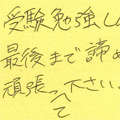 受験勉強し
最後まで諦め
頑張って下さい。